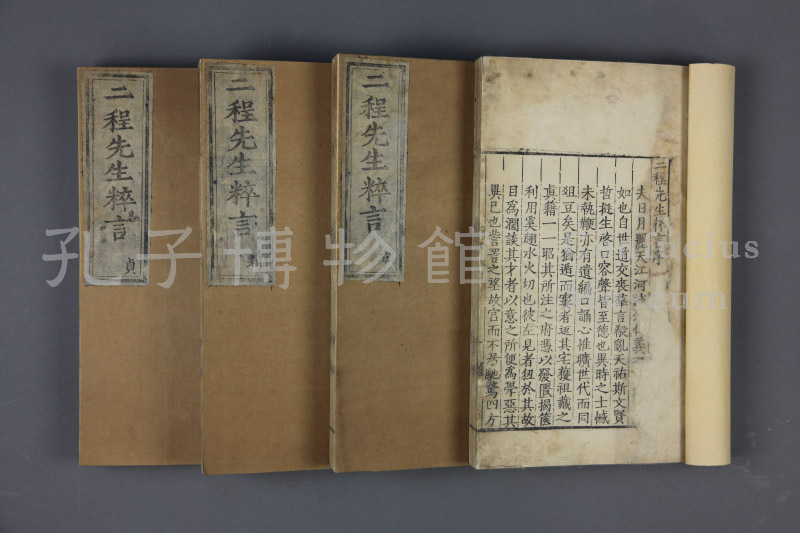 二程先生粹言
夫日月麗天江河
如也自世道交喪羣言殽亂天祐斯文賢
哲挺生啓口容聲皆至德也異時之士慽
未執鞭亦有遺編口誦心惟曠世代而同
俎豆矣是猶逋而竄者返其宅獲祖藏之
真籍一一昭其所注之府憑以發匱揭篋
利用奚趐水火切也彼左見者紐於其故
目爲濶談其才者以意之所便為學惡其
異已也訾置之聲故宫而不居馳騖四方
二程先生粹言
貞
二程先生粹言
利
二程先生粹言
孔子博物館
Confucius
Museum